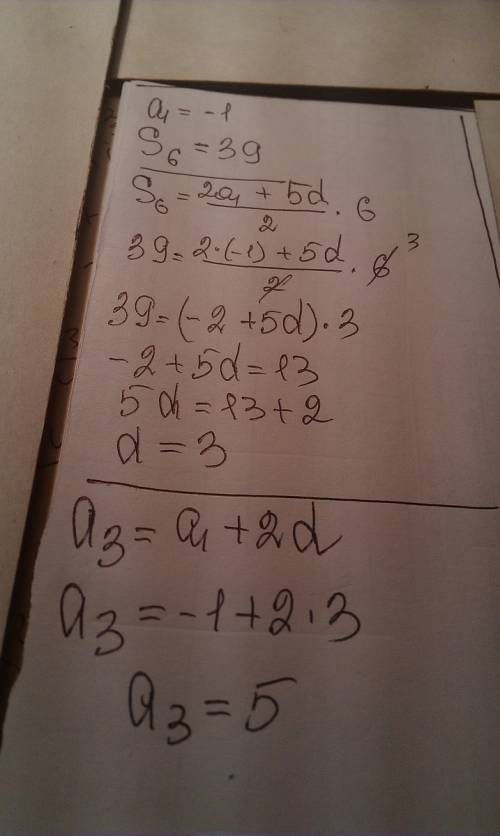 a₁ = -1
S₆ = 39
S₆ = (2a₁ + 5d)/2 · 6
39 = (2·(-1) + 5d)/2 · 6 3
39 = (-2 + 5d)·3
-2 + 5d = 13
5d = 13 + 2
d = 3
a₃ = a₁ + 2d
a₃ = -1 + 2·3
a₃ = 5